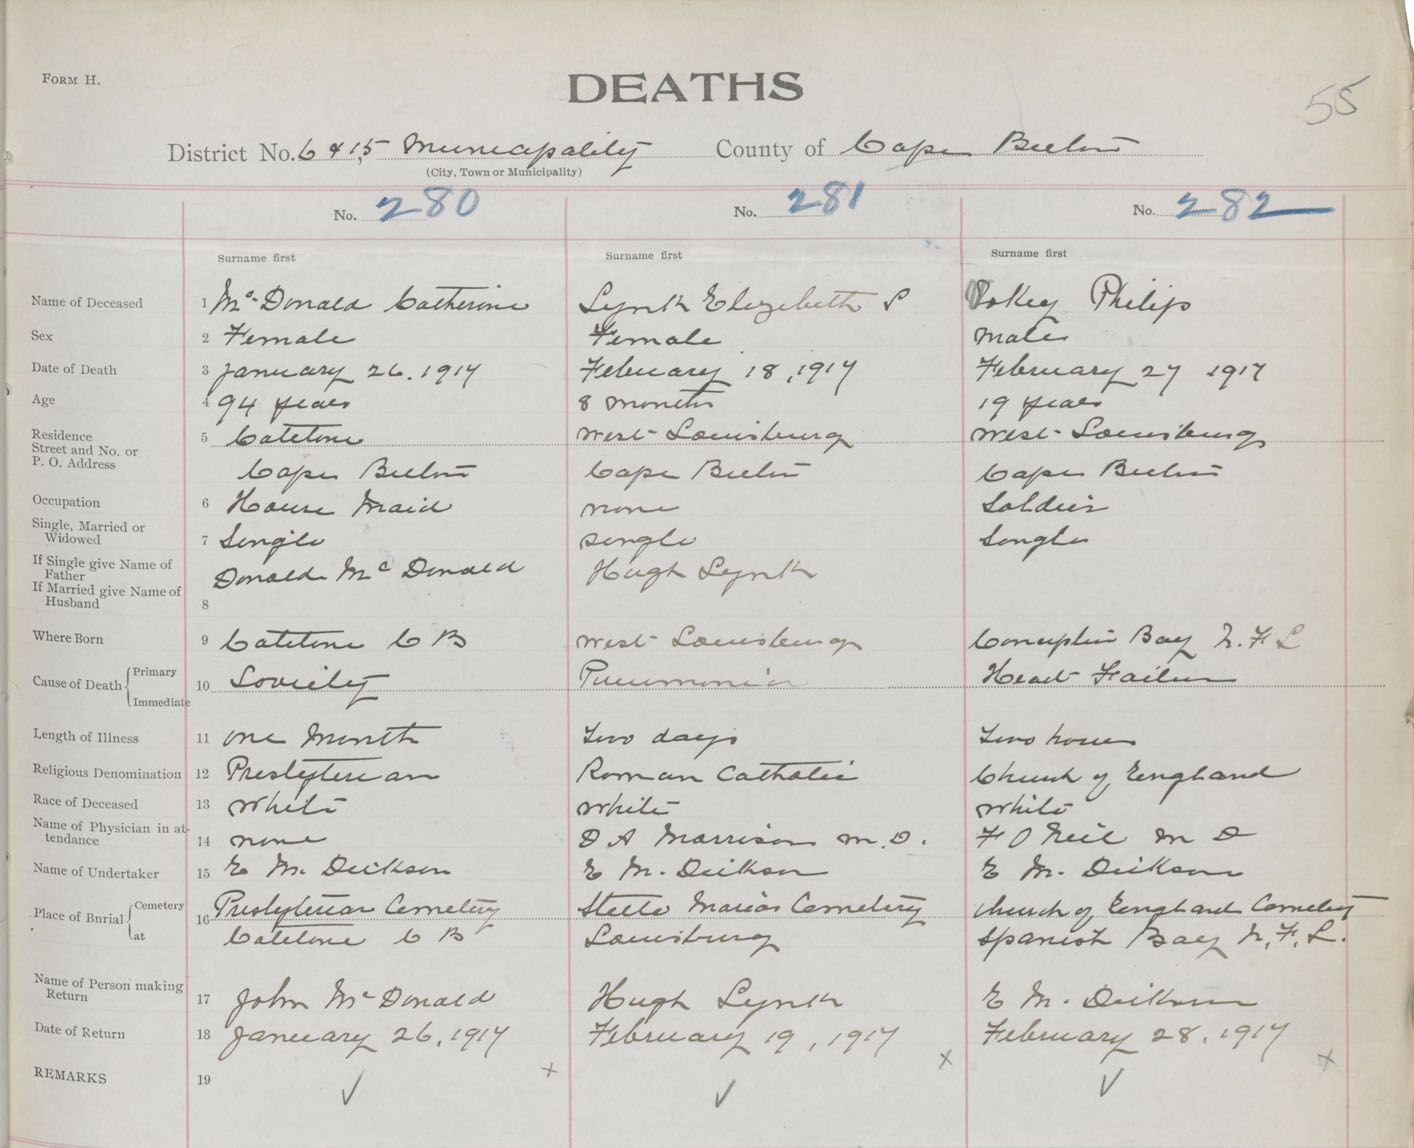 FORM H.
DEATHS
55
District No. 6 & 15 Municipality County of Cape Breton
(City, Town or Municipality)
No. 280 No. 281 No. 282
Surname first Surname first Surname first
Name of Deceased 1 Mc Donald Catherine Lynk Elizebeth S Vokey Philip
Sex 2 Female Female Male
Date of Death 3 January 26. 1917 February 18, 1917 February 27 1917
Age 4 94 years 8 months 19 years
Residence 5 Catalone West Louisburg West Louisburg
Street and No. or
P. O. Address Cape Breton Cape Breton Cape Breton
Occupation 6 House Maid none Soldier
Single, Married or
Widowed 7 Single single Single
If Single give Name of
Father Donald Mc Donald Hugh Lynk
If Married give Name of
Husband 8
Where Born 9 Catalone C B West Louisburg Conception Bay N. F L
Cause of Death Primary
10 Pneumonia Heart Failure
Immediate
Length of Illness 11 one Month Two days Two hours
Religious Denomination 12 Presbyterian Roman Catholic Church of England
Race of Deceased 13 White White White
Name of Physician in at-
tendance 14 none D A Morrison M. D. F O Neil M D
Name of Undertaker 15 E M. Dickson E M. Dickson E M. Dickson
Place of Burial Cemetery 16 Presbyterian Cemetery Stella Maris Cemetery Church of England Cemetery
at Catalone C B Louisburg Spanish Bay N. F. L.
Name of Person making
Return 17 John Mc Donald Hugh Lynk E M. Dickson
Date of Return 18 January 26, 1917 February 19, 1917 February 28, 1917
REMARKS 19